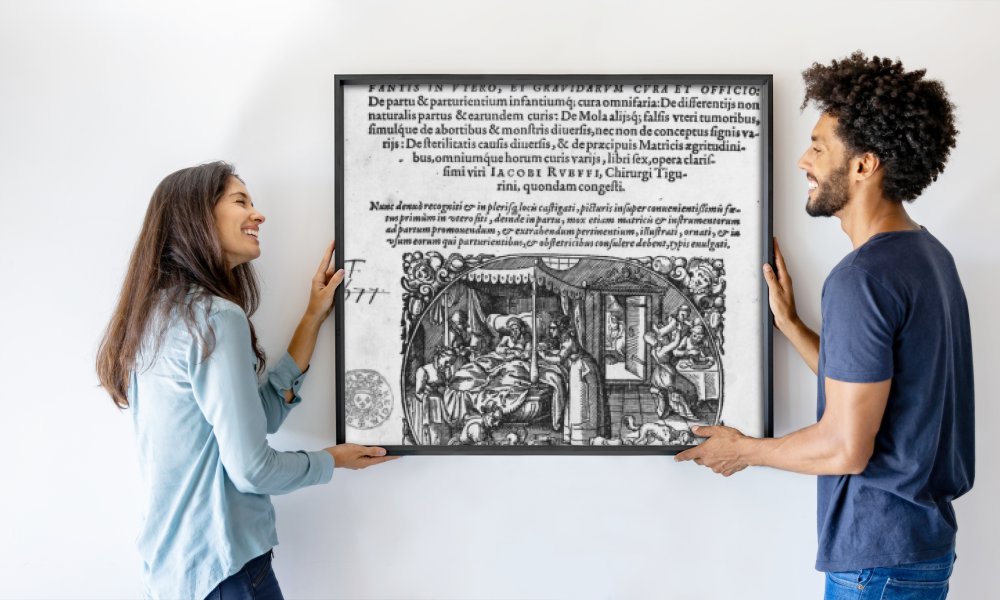 FANTIS IN VTERO, ET GRAVIDARVM CVRA ET OFFICIO:
De partu & parturientium infantiumq; cura omnifaria: De differentijs non
naturalis partus & earundem curis: De Mola alijsq; falsis vteri tumoribus,
simulque de abortibus & monstris diuersis, nec non de conceptus signis va-
rijs: De sterilitatis causis diuersis, & de præcipuis Matricis ægritudini-
bus, omniumque horum curis varijs, libri sex, opera claris-
simi viri IACOBI RVEFFI, Chirurgi Tigu-
rini, quondam congesti.
Nunc denuò recogniti & in plerisq; locis castigati, picturis insuper conuenientissimis fœ-
tus primùm in vtero siti, deinde in partu, mox etiam matricis & instrumentorum
ad partum promouendum, & extrahendum pertinentium, illustrati, ornati, & in
vsum eorum qui parturientibus, & obstetricibus consulere debent, typis euulgati.
577